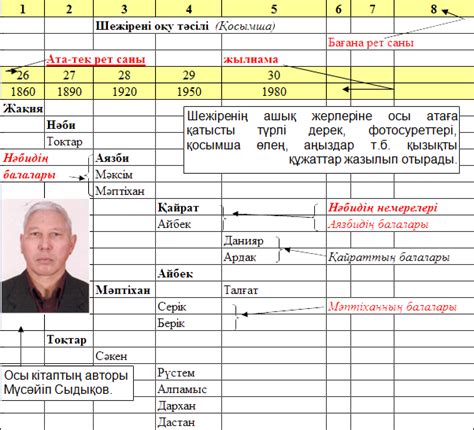 1 2 3 4 5 6 7 8
Шежірені оқу тәсілі (Қосымша)
Бағана рет саны
Ата-тек рет саны жылнама
26 27 28 29 30
1860 1890 1920 1950 1980
Жақия
Нәби
Тоқтар
Шежіренің ашық жерлеріне осы атаға
қатысты түрпі дерек, фотосуреттері,
қосымша өлең, аңыздар т.б. қызықты
құжаттар жазылып отырады.
Нәбидің балалары
Аязби
Мәксім
Мәптіхан
Қайрат
Айбек
Нәбидің немерелері
Аязбидің балалары
Данияр
Ардақ
Қайраттың балалары
Айбек
Мәптіхан Талғат
Серік
Берік
Мәптіханның балалары
Тоқтар
Сәкен
Осы кітаптың авторы
Мүсәйіп Сыдықов.
Рүстем
Алпамыс
Дархан
Дастан